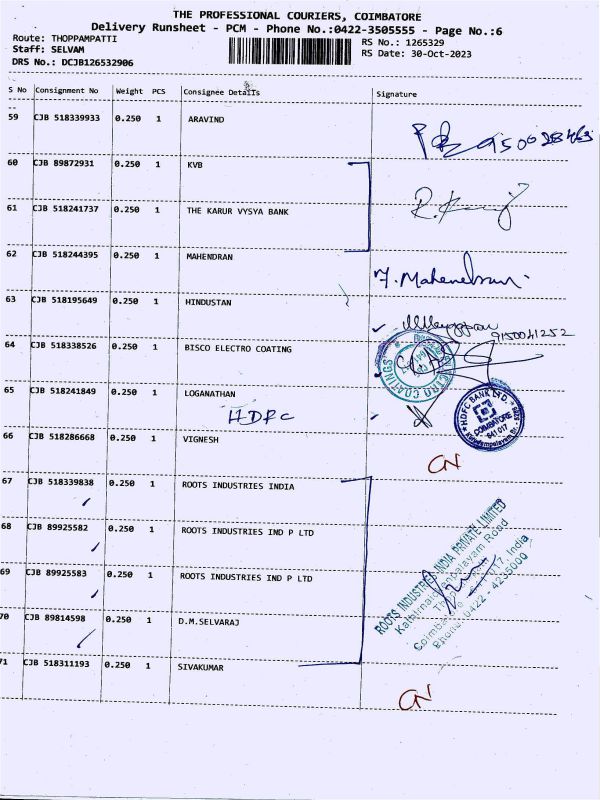 THE PROFESSIONAL COURIERS, COIMBATORE
Delivery Runsheet - PCM - Phone No.:0422-3505555 - Page No.:6
Route: THOPPAMPATTI RS No.: 1265329
Staff: SELVAM RS Date: 30-Oct-2023
DRS No.: DCJB126532906
S No Consignment No Weight PCS Consignee Details Signature
59 CJB 518339933 0.250 1 ARAVIND
60 CJB 89872931 0.250 1 KVB
61 CJB 518241737 0.250 1 THE KARUR VYSYA BANK
62 CJB 518244395 0.250 1 MAHENDRAN
63 CJB 518195649 0.250 1 HINDUSTAN
9150041252
64 CJB 518338526 0.250 1 BISCO ELECTRO COATING
65 CJB 518241849 0.250 1 LOGANATHAN
HDFC
HDFC BANK LTD.
COIMBATORE
641 017
66 CJB 518286668 0.250 1 VIGNESH CN
67 CJB 518339838 0.250 1 ROOTS INDUSTRIES INDIA
68 CJB 89925582 0.250 1 ROOTS INDUSTRIES IND P LTD
69 CJB 89925583 0.250 1 ROOTS INDUSTRIES IND P LTD
ROOTS INDUSTRIES INDIA PRIVATE LIMITED
Phone: 0422 - 4235000
70 CJB 89814598 0.250 1 D.M.SELVARAJ
71 CJB 518311193 0.250 1 SIVAKUMAR CN